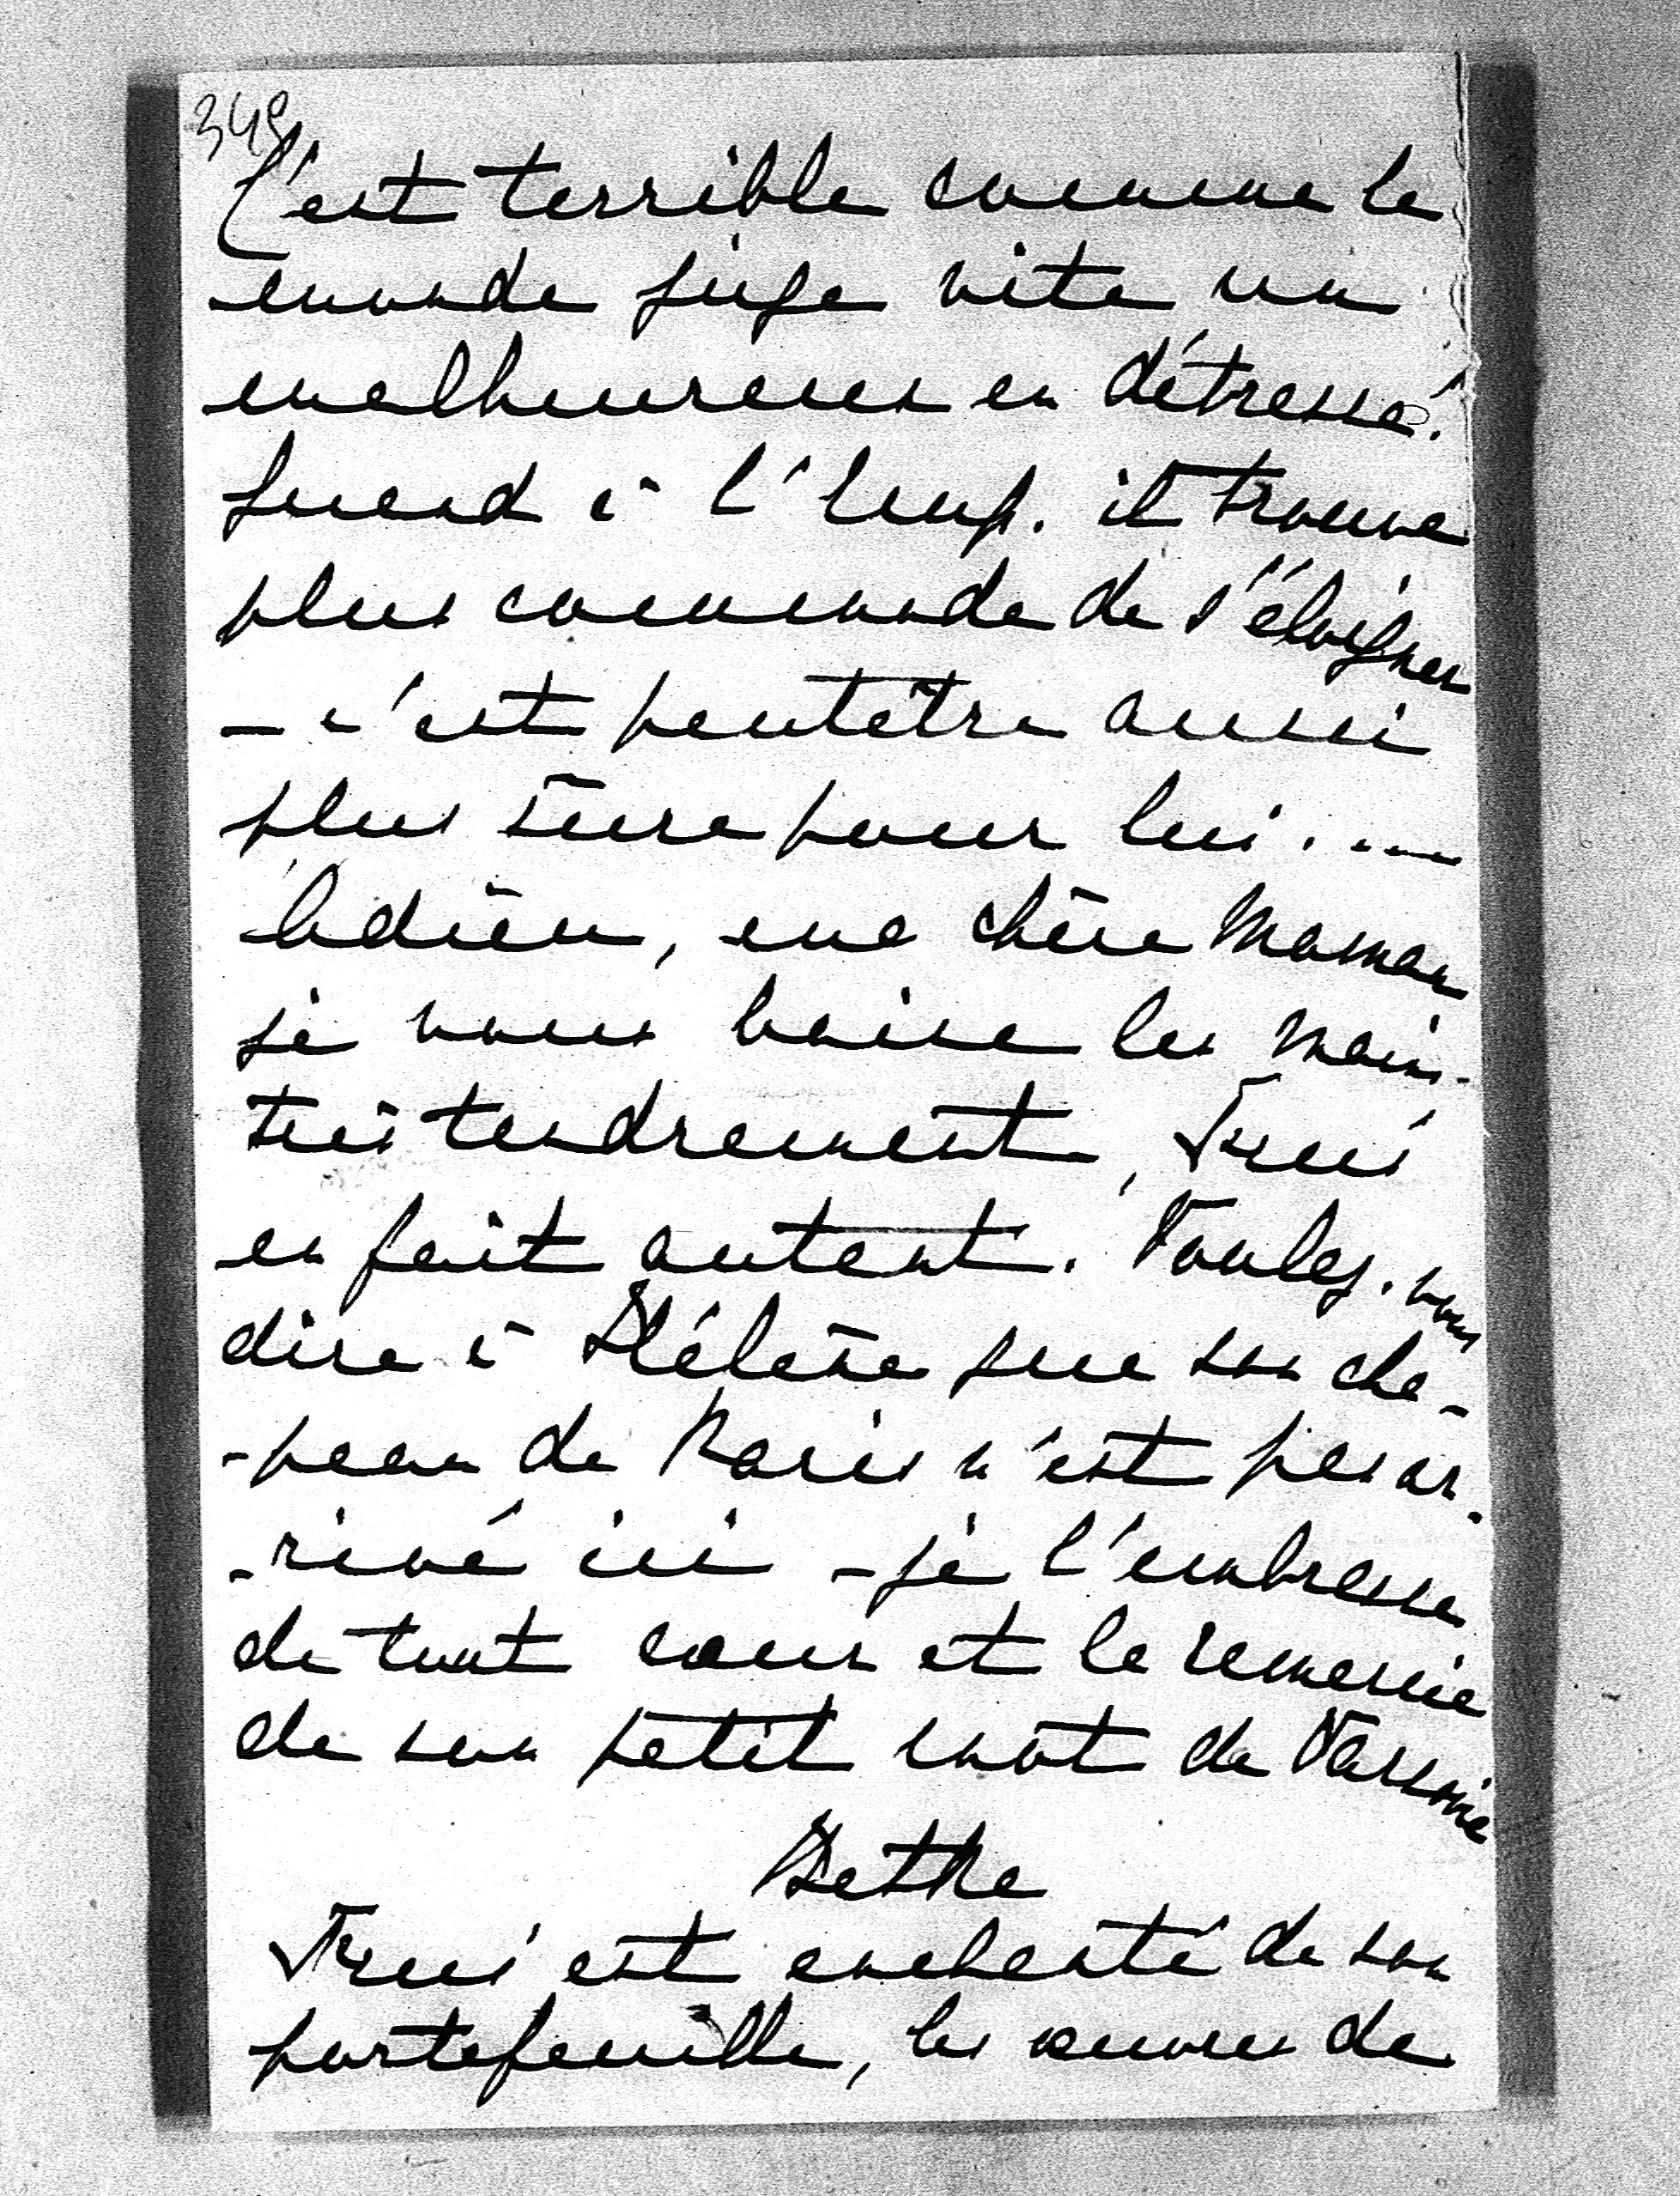 349
C'est terrible comme le
monde juge vite un
malheureux en détresse!
quand à l'Emp. il trouve
plus commode de s'éloigner
– c'est peutêtre aussi
plus sûre pour lui. ...
Adieu, ma chère Maman
je vous baise les mains
très tendrement,
en fait autant. Voulez-vous
dire à Hélène que son cha-
-peau de Paris n'est pas ar-
-rivé ici – je l'embrasse
de tout cœur et la remercie
de son petit mot de Varsovie
est enchanté de son
portefeuille, les œuvres de